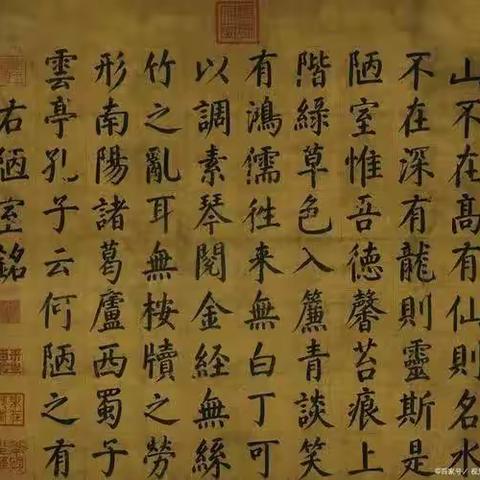 山不在高有仙則名水
不在深有龍則靈斯是
陋室惟吾德馨苔痕上
階綠草色入簾青談笑
有鴻儒徃来無白丁可
以調素琴閱金經無絲
竹之亂耳無桉牘之勞
形南陽諸葛廬西蜀子
雲亭孔子云何陋之有
右陋室銘
©百家号/